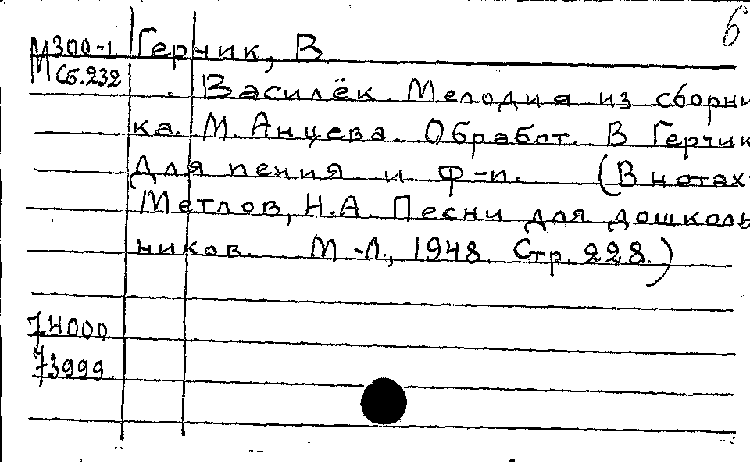 6
М300-1 Герчик, В
М Сб.232 Василёк. Мелодия из сборни
ка. М. Анцева. Обработ. В Герчик
Для пения и ф-п. (В нотах:
Метлов, Н.А. Песни для дошколь
ников. М-Л., 1948. Стр. 228.)
74000
73999